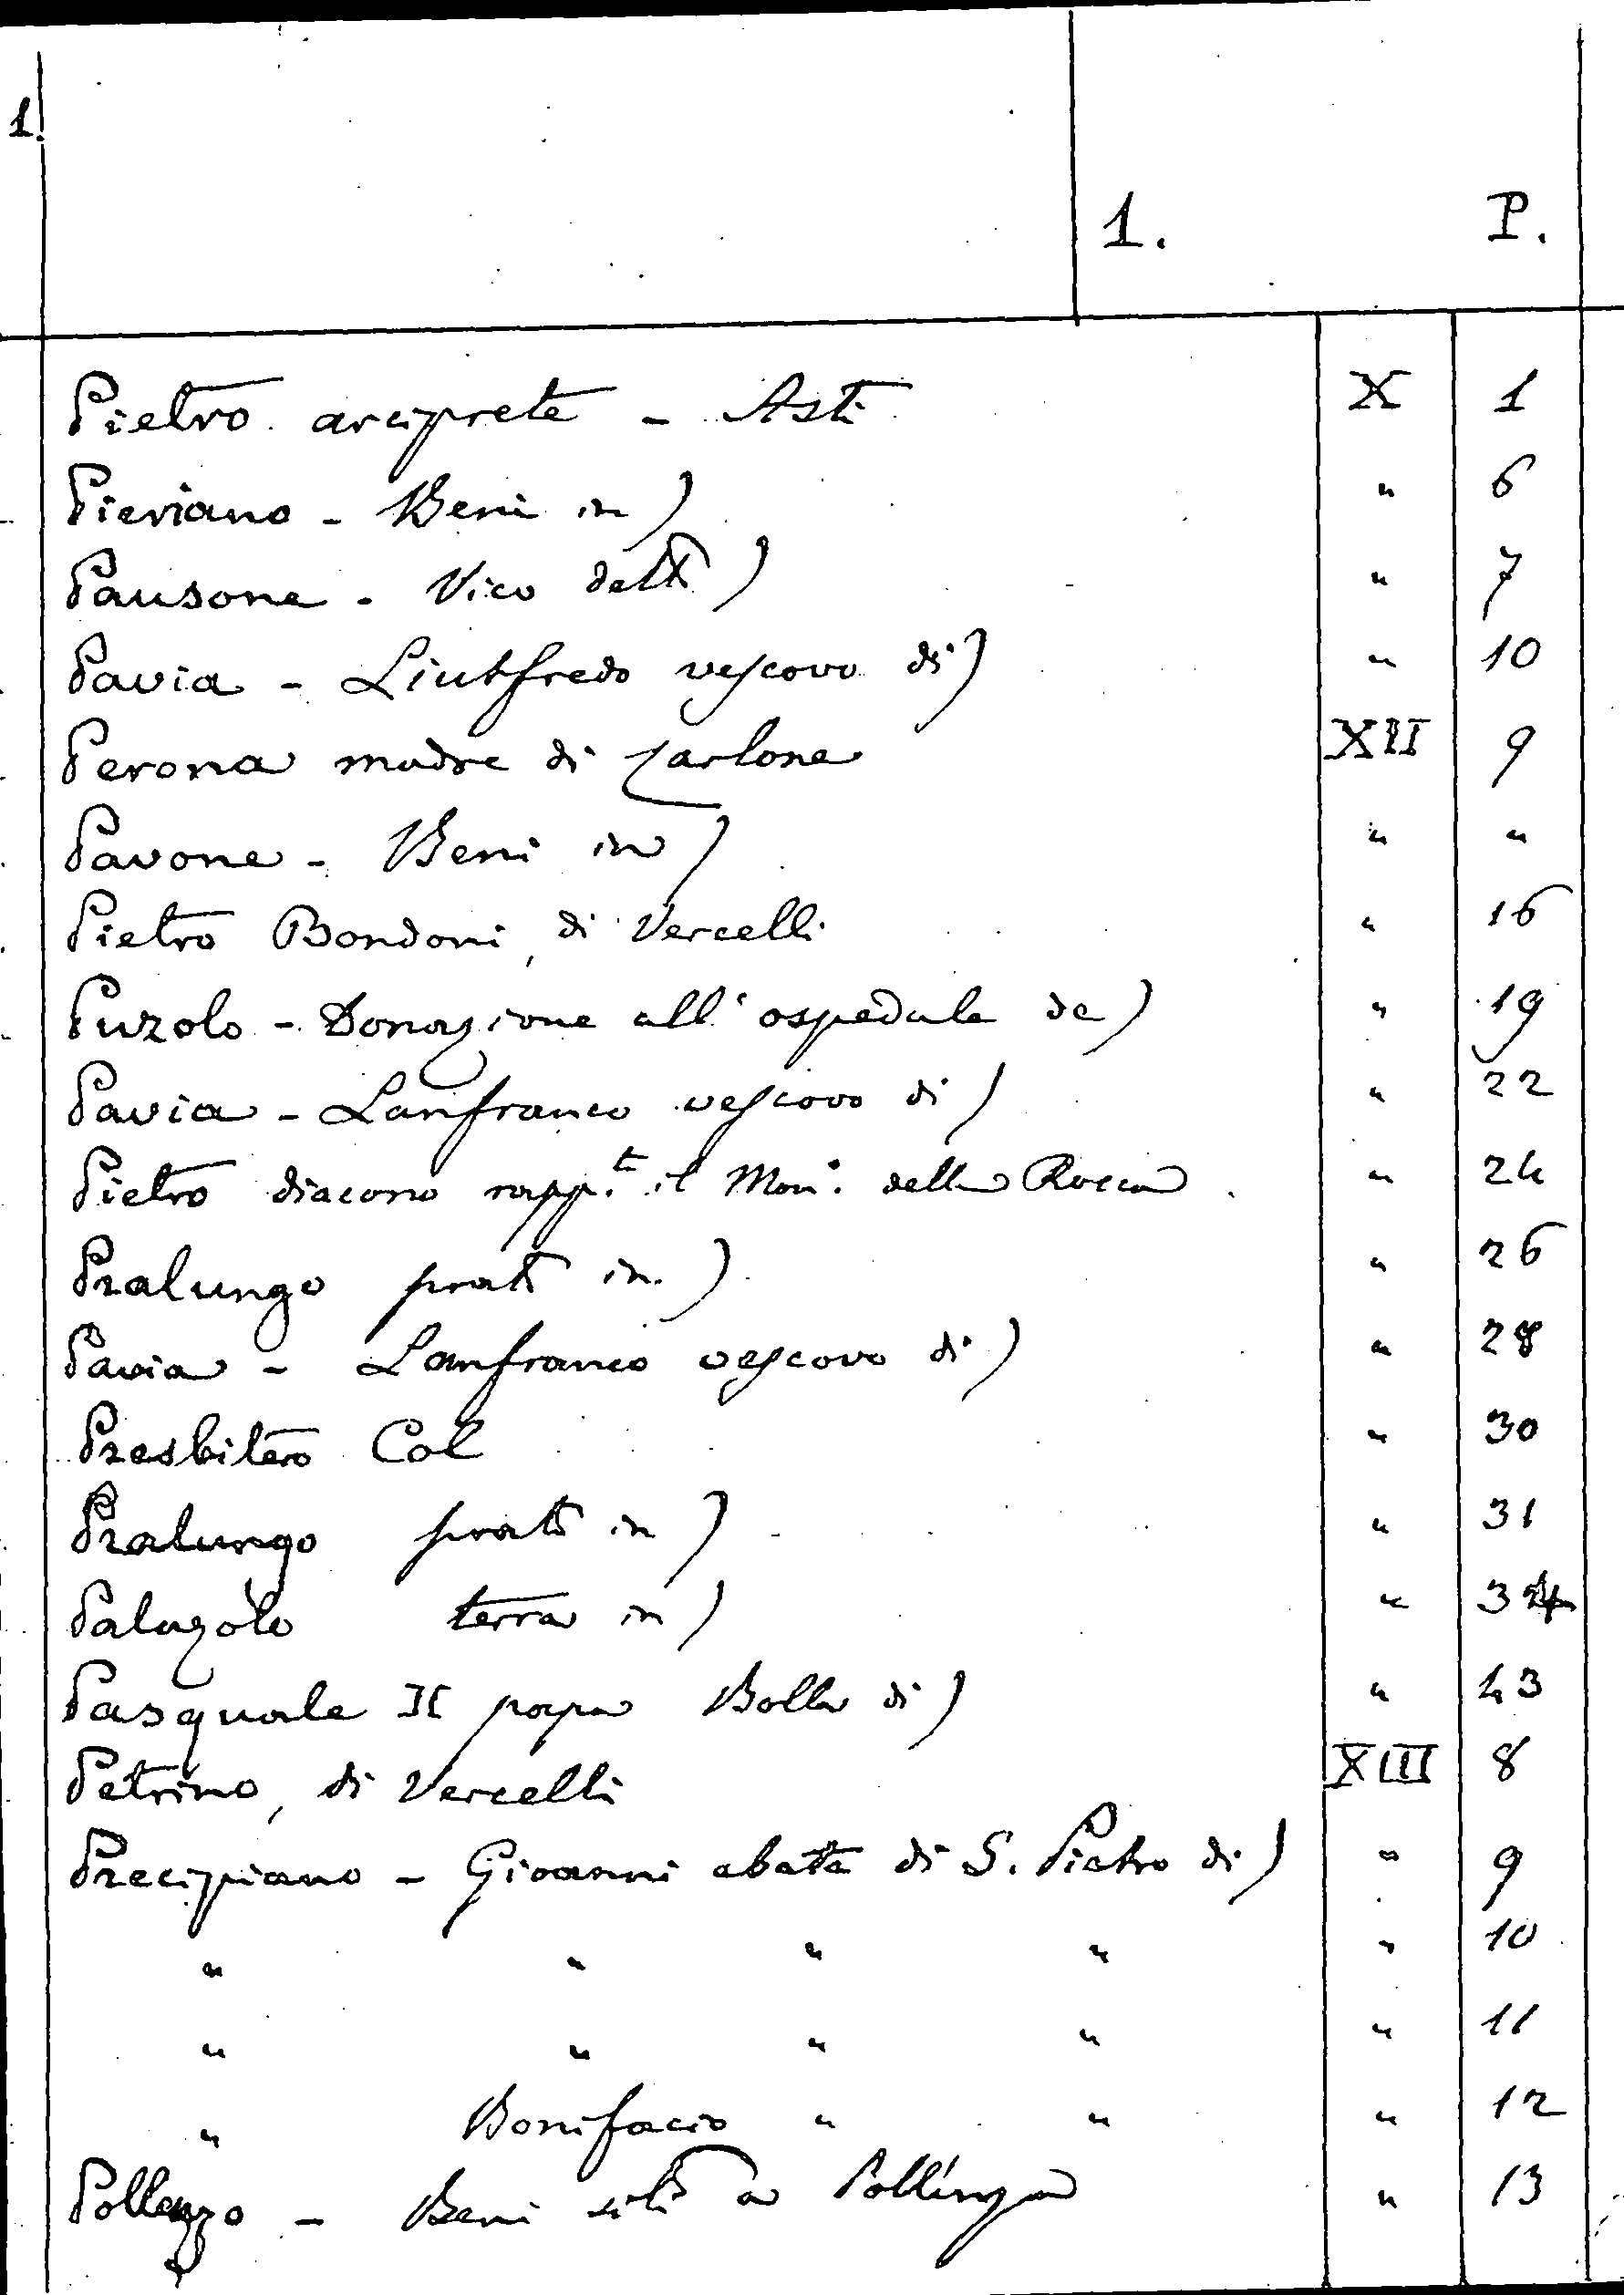 1.
1. P.
Pietro arciprete - Asti X 1
Pieviano - Beni in) " 6
Pausone - Vico detto) " 7
Pavia - Liutfredo vescovo di) " 10
Perona madre di Carlone XII 9
Pavone - Beni in) " "
Pietro Bondoni, di Vercelli " 16
Puzolo - Donazione all'ospedale de) " 19
Pavia - Lanfranco vescovo di) " 22
Pietro diacono rapp.t il Mon.o della Rocca " 24
Pralungo prato in) " 26
Pavia - Lanfranco vescovo di) " 28
Presbitero Col " 30
Pralungo prato in) " 31
Palazolo terra in) " 34
Pasquale II papa Bolla di) " 43
Petrino, di Vercelli XIII 8
Precipiano - Gioanni abate di S. Pietro di) " 9
" " " " " 10
" " " " " 11
" Bonifacio " " " 12
Pollenzo - Beni siti a Pollinza " 13